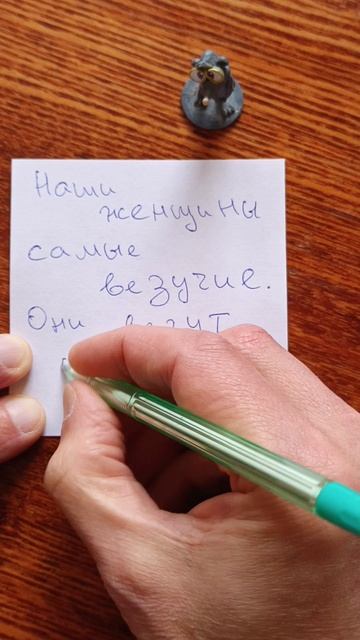 Наши
женщины
самые
везучие.
Они везут